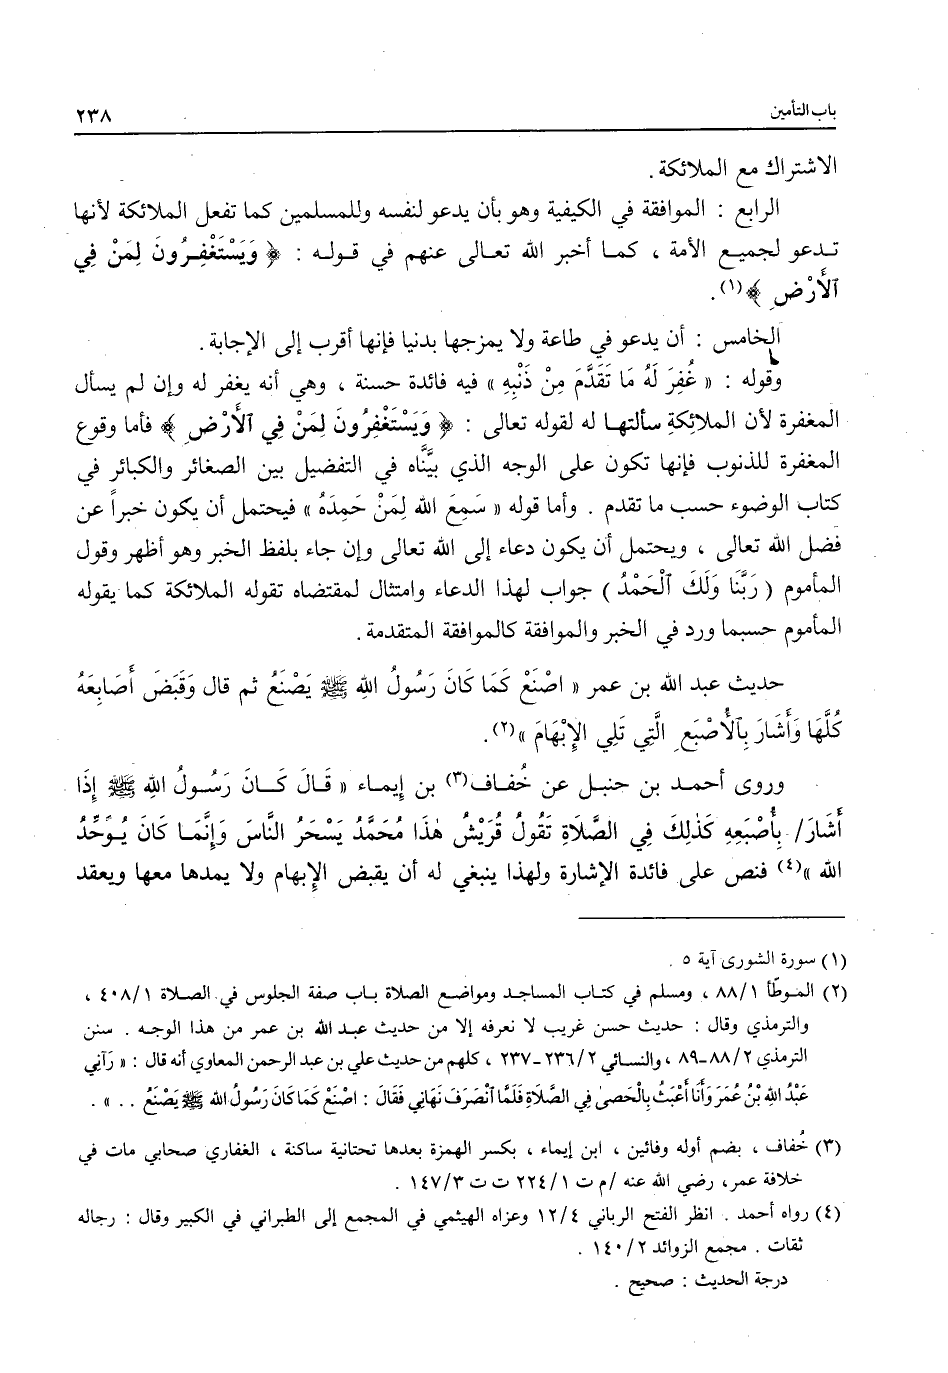 باب التأمين
٢٣٨
الاشتراك مع الملائكة .
الرابع : الموافقة في الكيفية وهو بأن يدعو لنفسه وللمسلمين كما تفعل الملائكة لأنها
تدعو لجميع الأمة ، كما أخبر الله تعالى عنهم في قوله : ﴿ وَيَسْتَغْفِرُونَ لِمَنْ فِي
ٱلْأَرْضِ ﴾(١).
الخامس : أن يدعو في طاعة ولا يمزجها بدنيا فإنها أقرب إلى الإجابة .
وقوله : « غُفِرَ لَهُ مَا تَقَدَّمَ مِنْ ذَنْبِهِ » فيه فائدة حسنة ، وهي أنه يغفر له وإن لم يسأل
المغفرة لأن الملائكةِ سألتها له لقوله تعالى : ﴿ وَيَسْتَغْفِرُونَ لِمَنْ فِي ٱلْأَرْضِ ﴾ فأما وقوع
المغفرة للذنوب فإنها تكون على الوجه الذي بيَّناه في التفضيل بين الصغائر والكبائر في
كتاب الوضوء حسب ما تقدم . وأما قوله « سَمِعَ الله لِمَنْ حَمِدَهُ » فيحتمل أن يكون خبراً عن
فضل الله تعالى ، ويحتمل أن يكون دعاء إلى الله تعالى وإن جاء بلفظ الخبر وهو أظهر وقول
المأموم ( رَبَّنَا وَلَكَ ٱلْحَمْدُ ) جواب لهذا الدعاء وامتثال لمقتضاه تقوله الملائكة كما يقوله
المأموم حسبما ورد في الخبر والموافقة كالموافقة المتقدمة .
حديث عبد الله بن عمر « اصْنَعْ كَمَا كَانَ رَسُولُ اللهِ ﷺ يَصْنَعُ ثم قال وَقَبَضَ أَصَابِعَهُ
كُلَّهَا وَأَشَارَ بِٱلْأُصْبَعِ الَّتِي تَلِي الإِبْهَامَ »(٢).
وروى أحمد بن حنبل عن خُفاف(٣) بن إيماء « قَالَ كَانَ رَسُولُ اللهِ ﷺ إِذَا
أَشَارَ/ بِأُصْبَعِهِ كَذٰلِكَ فِي الصَّلَاةِ تَقُولُ قُرَيْشُ هٰذَا مُحَمَّدُ يَسْحَرُ النَّاسَ وَإِنَّمَا كَانَ يُوَحِّدُ
الله »(٤) فنص على فائدة الإشارة ولهذا ينبغي له أن يقبض الإبهام ولا يمدها معها ويعقد
(١) سورة الشورى آية ٥ .
(٢) الموطّأ ٨٨/١ ، ومسلم في كتاب المساجد ومواضع الصلاة باب صفة الجلوس في الصلاة ٤٠٨/١ ،
والترمذي وقال : حديث حسن غريب لا نعرفه إلا من حديث عبد الله بن عمر من هذا الوجه . سنن
الترمذي ٨٨/٢ـ٨٩ ، والنسائي ٢٣٦/٢ـ٢٣٧ ، كلهم من حديث علي بن عبد الرحمن المعاوي أنه قال : « رَآنِي
عَبْدُ اللهِ بْنُ عُمَرَ وَأَنَا أَعْبَثُ بِالْحَصىٰ فِي الصَّلَاةِ فَلَمَّا ٱنْصَرَفَ نَهَانِي فَقَالَ : اصْنَعْ كَمَا كَانَ رَسُولُ الله ﷺ يَصْنَعُ . . » .
(٣) خُفاف ، بضم أوله وفائين ، ابن إيماء ، بكسر الهمزة بعدها تحتانية ساكنة ، الغفاري صحابي مات في
خلافة عمر، رضي الله عنه /م ت ٢٢٤/١ ت ت ١٤٧/٣ .
(٤) رواه أحمد . انظر الفتح الرباني ١٢/٤ وعزاه الهيثمي في المجمع إلى الطبراني في الكبير وقال : رجاله
ثقات . مجمع الزوائد ١٤٠/٢ .
درجة الحديث : صحيح .